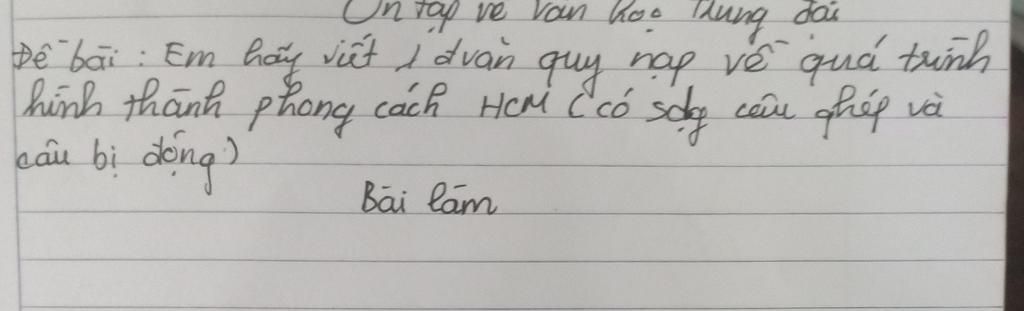 Ôn tập về văn học trung đại
Đề bài: Em hãy viết 1 đvăn quy nạp về quá trình
hình thành phong cách HCM (có sdg câu ghép và
câu bị động)
Bài làm